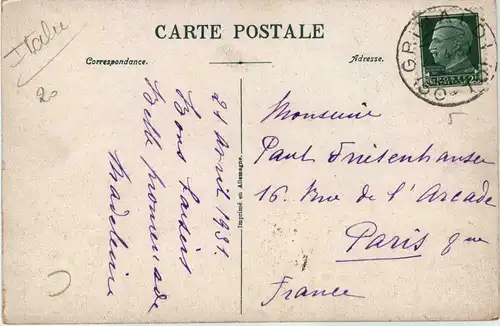 Italie
20
CARTE POSTALE
Correspondance.
Adresse.
GRIMALDI
5
21 Avril 1931.
Bons baisers
Belle promenade
Madeleine
Imprimé en Allemagne.
Monsieur
Paul
16. Rue de l'Arcade
Paris
France